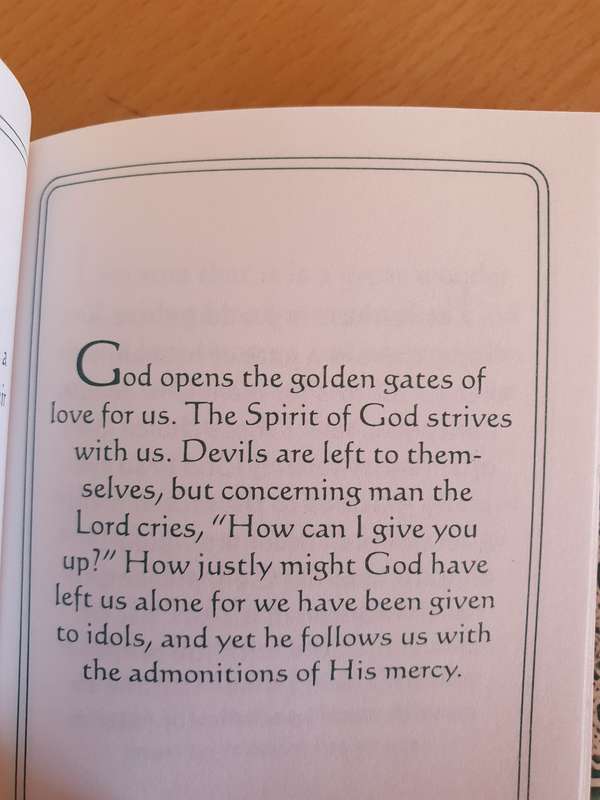 God opens the golden gates of
love for us. The Spirit of God strives
with us. Devils are left to them-
selves, but concerning man the
Lord cries, "How can I give you
up?" How justly might God have
left us alone for we have been given
to idols, and yet he follows us with
the admonitions of His mercy.